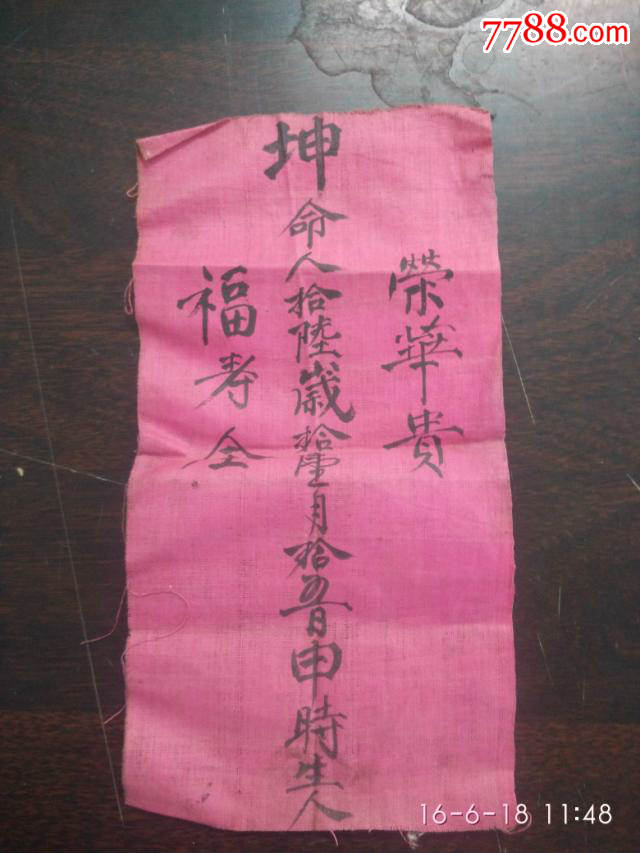 7788.com
榮華貴
坤命人拾陸歲拾壹月拾五日申時生人
福寿全
16-6-18 11:48